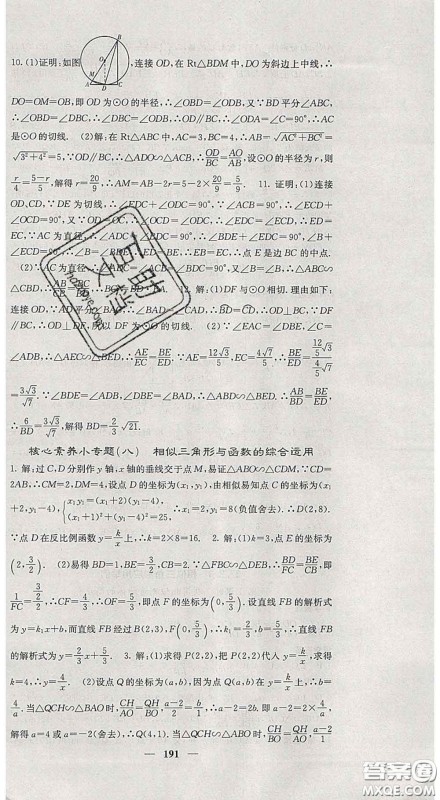 10. (1)证明:如图 ,连接 OD,在 Rt△BDM 中,DO 为斜边上中线,∴
DO=OM=OB,即 OD 为⊙O 的半径,∴∠OBD=∠ODB,又∵BD 平分∠ABC,
∴∠OBD=∠DBC,∴∠ODB=∠DBC,∴OD∥BC,∴∠ODA=∠C=90°,∴AC
是⊙O 的切线. (2)解:在 Rt△ABC 中,AC=3,BC=4,∴AB=√(AC²+BC²)=
√(3²+4²)=5,∵OD∥BC,∴△ADO∽△ACB,∴OD/BC=AO/AB,设⊙O 的半径为 r,则
r/4=(5-r)/5,解得 r=20/9,∴AM=AB-2r=5-2×20/9=5/9. 11. 证明:(1)连接
OD,CD,∵DE 为切线,∴∠EDC+∠ODC=90°,∵∠ACB=90°,∴∠ECD
+∠OCD=90°,又∵OD=OC,∴∠ODC=∠OCD,∴∠EDC=∠ECD,∴ED=
EC,∵AC 为直径,∴∠ADC=90°,∴∠BDE+∠EDC=90°,∠B+
∠ECD=90°,∴∠B=∠BDE,∴ED=EB,∴EB=EC,∴点 E 是边 BC 的中点.
(2)∵AC 为直径,∴∠ADC=
∠B,∴
DF 与⊙O 相切. 理由如下:
连接 OD,
,∴∠BAD=∠CAD,∴
,∴OD⊥BC,∵DF∥
BC,∴OD⊥DF,∴DF 为⊙O 的切线.
∠C=
∠ADB,∴△AEC∽△BED,∴AE/BE=EC/ED,∵AE=12√3/5,
∠BDE=∠DBC=∠DAB,∵∠BED=∠AEB,∴△DBE∽
∵∠BDE=∠ADB,∠DBE=∠BAD,∴△DBE∽△DAB,∴BE/AB=BD/AD,
∴6/BD=3√3/√7,解得 BD=2/3√21.
核心素养小专题(八) 相似三角形与函数的综合运用
1. 解:过 C,D 分别作 y 轴,x 轴的垂线交于点 M,易证△ABO∽△CDM,∵CD=
2AB,∴CM=2,DM=4,设点 D 的坐标为(x₁,y₁),由相似易知点 C 的坐标为(x₁
+2,y₁-4),∴{x₁y₁=(x₁+2)(y₁-4), (x₁+1)²+(y₁-4)²=25,∴x₁=2,y₁=8(负值舍去).∴D(2,8).
∵点 D 在反比例函数 y=k/x 上,∴k=2×8=16. 2. 解:(1)k=3,点 E 的坐标为
(2,3/2). (2)易得 BD=1,BE=3/2,CB=2.∵△FBC∽△DEB,∴BD/FC=BE/CB,即
1/FC=(3/2)/2,∴CF=4/3,∴OF=5/3,即点 F 的坐标为(0,5/3). 设直线 FB 的解析式
为 y=k₁x+b,而直线 FB 经过 B(2,3),F(0,5/3),∴k₁=2/3,b=5/3,∴直线 FB
的解析式为 y=2/3x+5/3. 3. 解:(1)求得 P(2,2),把 P(2,2)代入 y=k/x,求得
k=4,∴y=4/x. (2)设点 Q 的坐标为(a,b),因为点 Q(a,b)在 y=4/x 上,∴b=
4/a. 当△QCH∽△BAO 时,∵CH/AO=QH/BO,∴(a-2)/2=b/1,∴a-2=2b. 即 a-2=8/a.
解得 a=4 或 a=-2(舍去),∴Q(4,1). 当△QCH∽△ABO 时,∵CH/BO=QH/AO,∴(a-2)/1=
191
答案圈
MXQE.COM